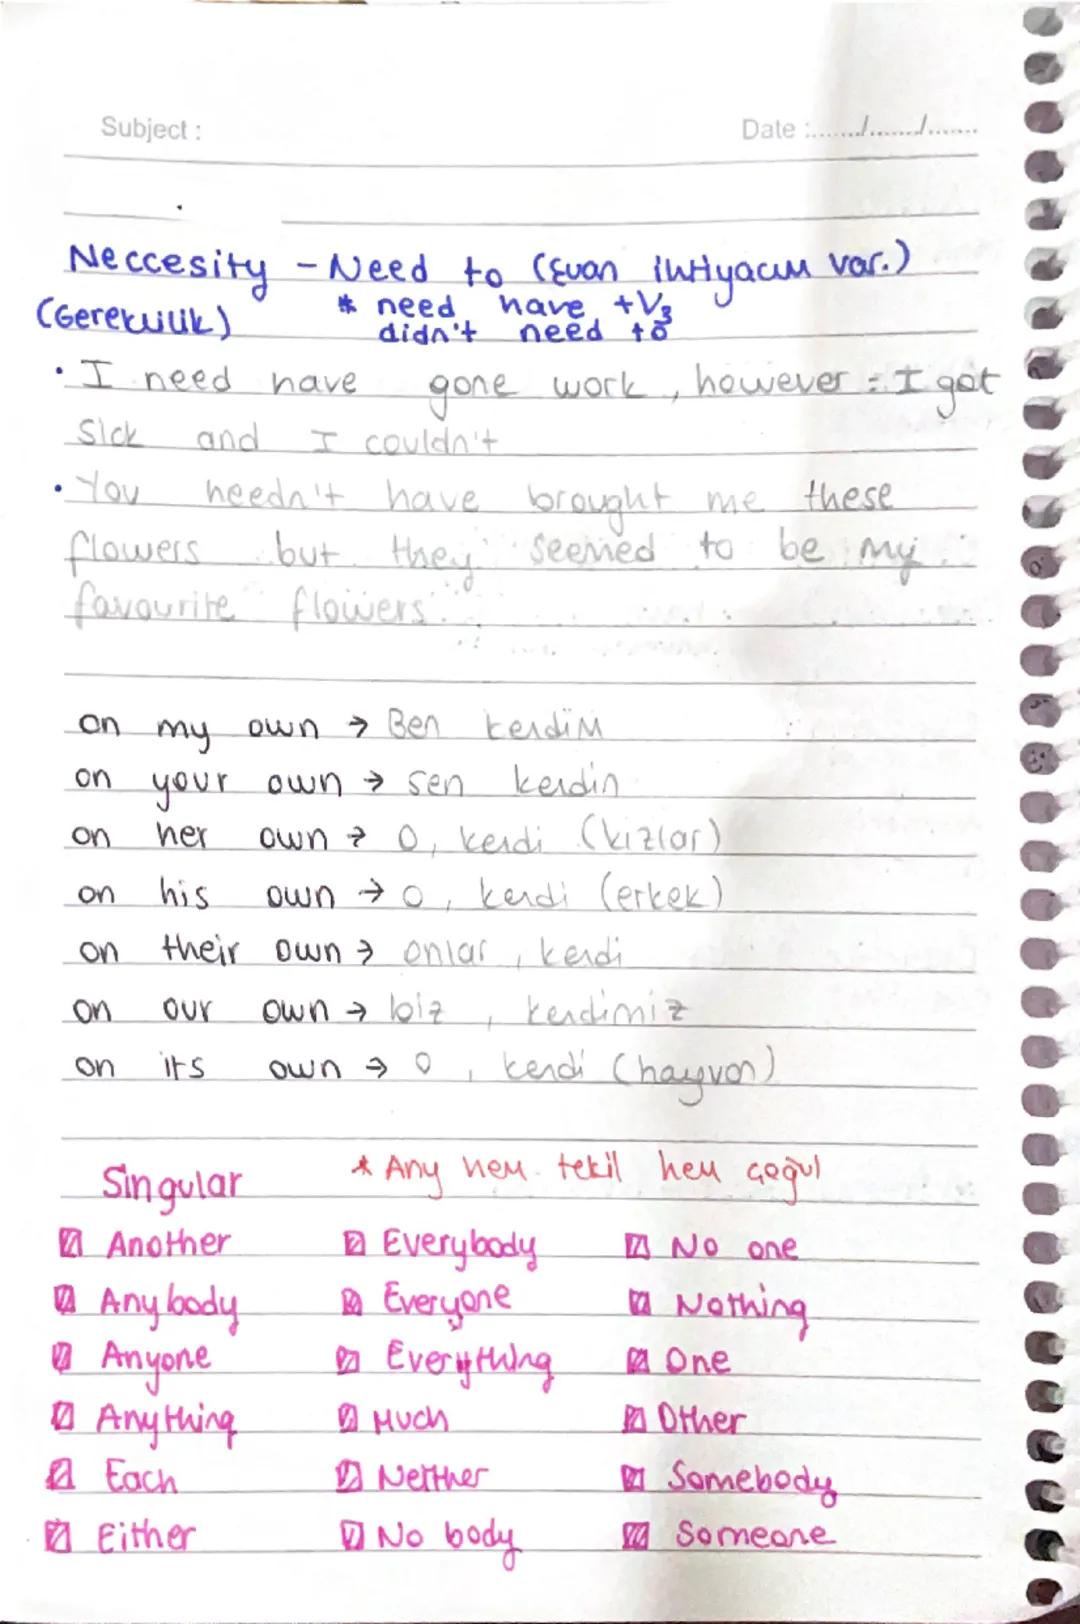 Subject :
Date :......./......./.......
Neccesity - Need to (Evan ihtiyacım var.)
(Gereklilik) * need have +V3
didn't need to
• I need have gone work, however = I got
sick and I couldn't
• You needn't have brought me these
flowers but they seemed to be my
favourite flowers.
on my own → Ben kendim
on your own → sen kendin
on her own → O, kendi (kızlar)
on his own → o, kendi (erkek)
on their own → onlar, kendi
on our own → biz, kendimiz
on its own → o, kendi (hayvan)
Singular * Any hem tekil hem çoğul
Another Everybody No one
Anybody Everyone Nothing
Anyone Everything One
Anything Much Other
Each Neither Somebody
Either No body Someone